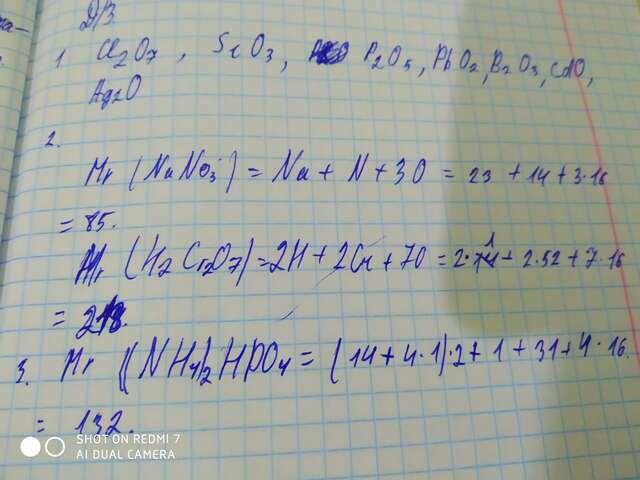 Д/З
1 Cl2O7, SeO3, P2O5, PbO2, B2O3, CdO,
Ag2O
2.
Mr (NaNO3) = Na + N + 3O = 23 + 14 + 3·16
= 85.
Mr (H2Cr2O7) = 2H + 2Cr + 7O = 2·1 + 2·52 + 7·16
= 218.
3. Mr ((NH4)2HPO4 = (14 + 4·1)·2 + 1 + 31 + 4·16.
= 132.
SHOT ON REDMI 7
AI DUAL CAMERA